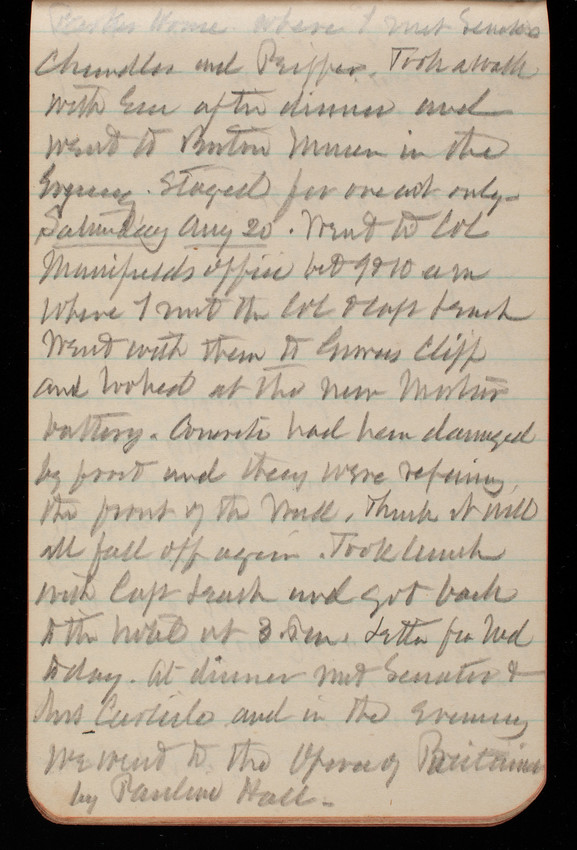 Parker House where I met Senators
Chandler and Peffer. Took a walk
with Eva after dinner and
went to Boston Museum in the
Evening. Stayed for one act only.
Saturday Aug 20. Went to Col
Mansfields office bet 9 & 10 am
where I met the Col & Capt Leach
Went with them to Grovers Cliff
and looked at the new Mortar
battery. Concrete had been damaged
by frost and they were refacing
the front of the Wall, think it will
all fall off again. Took lunch
with Capt Leach and got back
to the hotel at 3 P.m. Letter for Ned
to day. At dinner met Senator &
Mrs Carlisle and in the Evening
We went to the Opera of Puritania
by Pauline Hall.